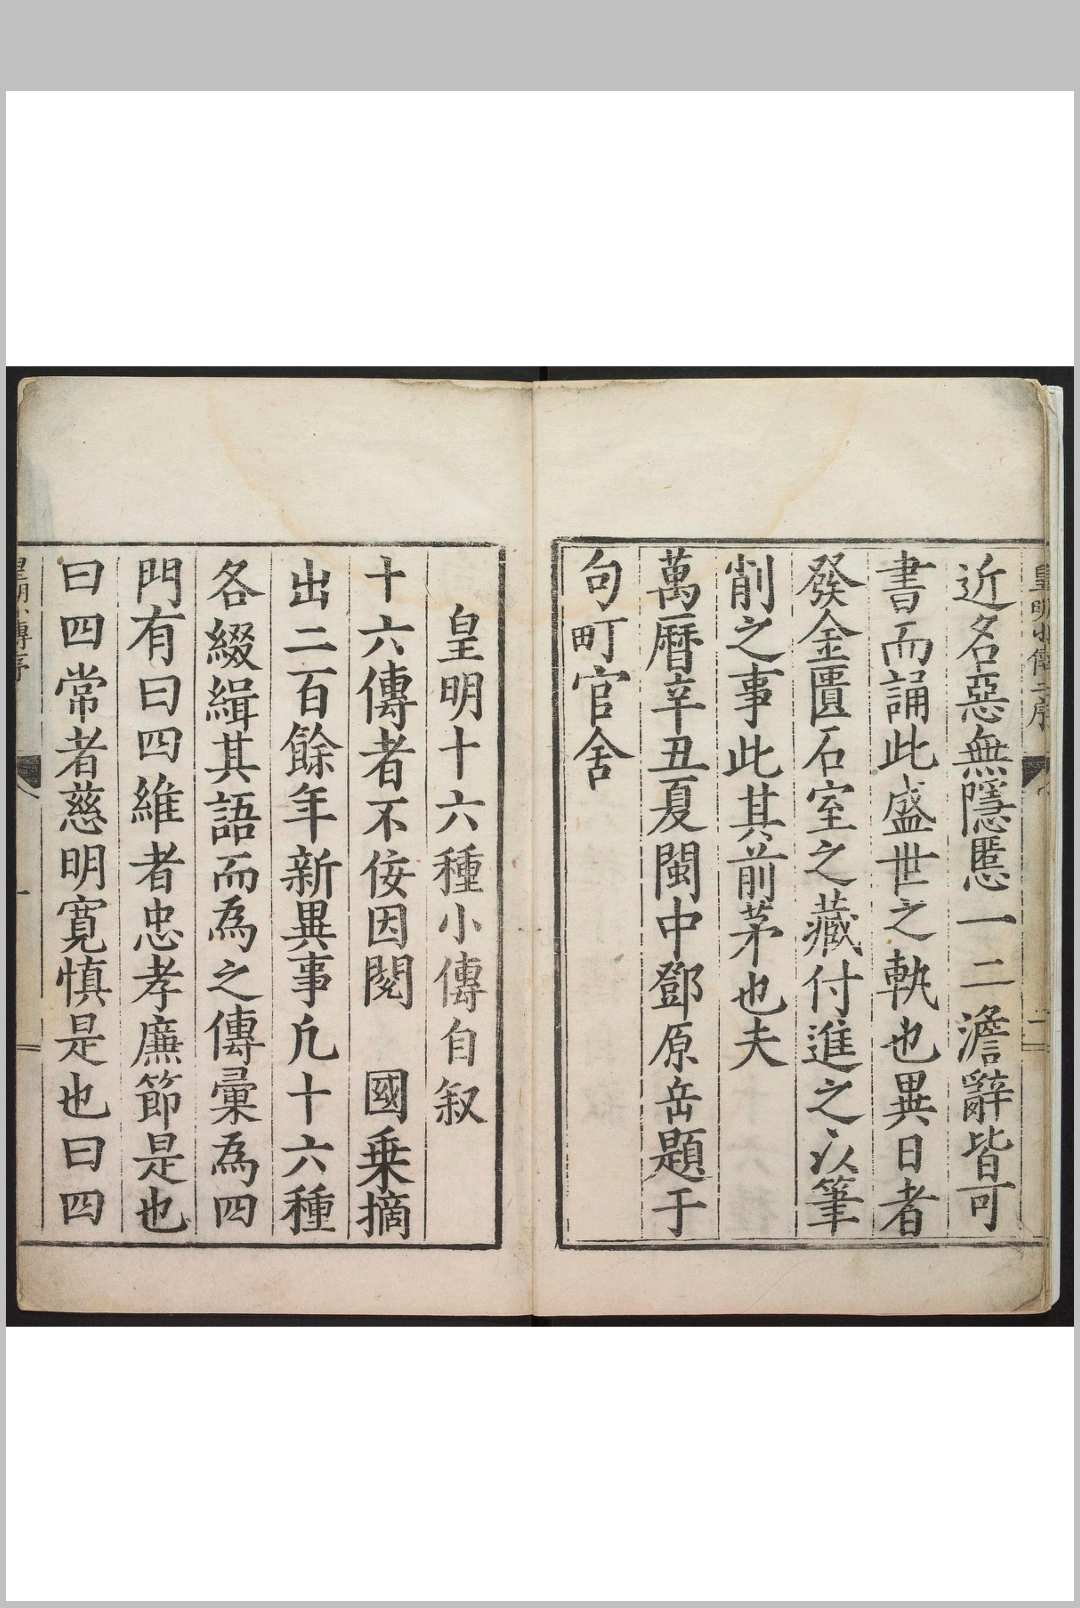 近名惡無隱慝一二澹辭皆可
書而誦此盛世之執也異日者
發金匱石室之藏付進之以筆
削之事此其前茅也夫
萬曆辛丑夏閩中鄧原岳題于
句町官舍
皇明十六種小傳自叙
十六傳者不佞因閱 國乘摘
出二百餘年新異事凢十六種
各綴緝其語而為之傳彙為四
門有曰四維者忠孝廉節是也
曰四常者慈明寬慎是也曰四